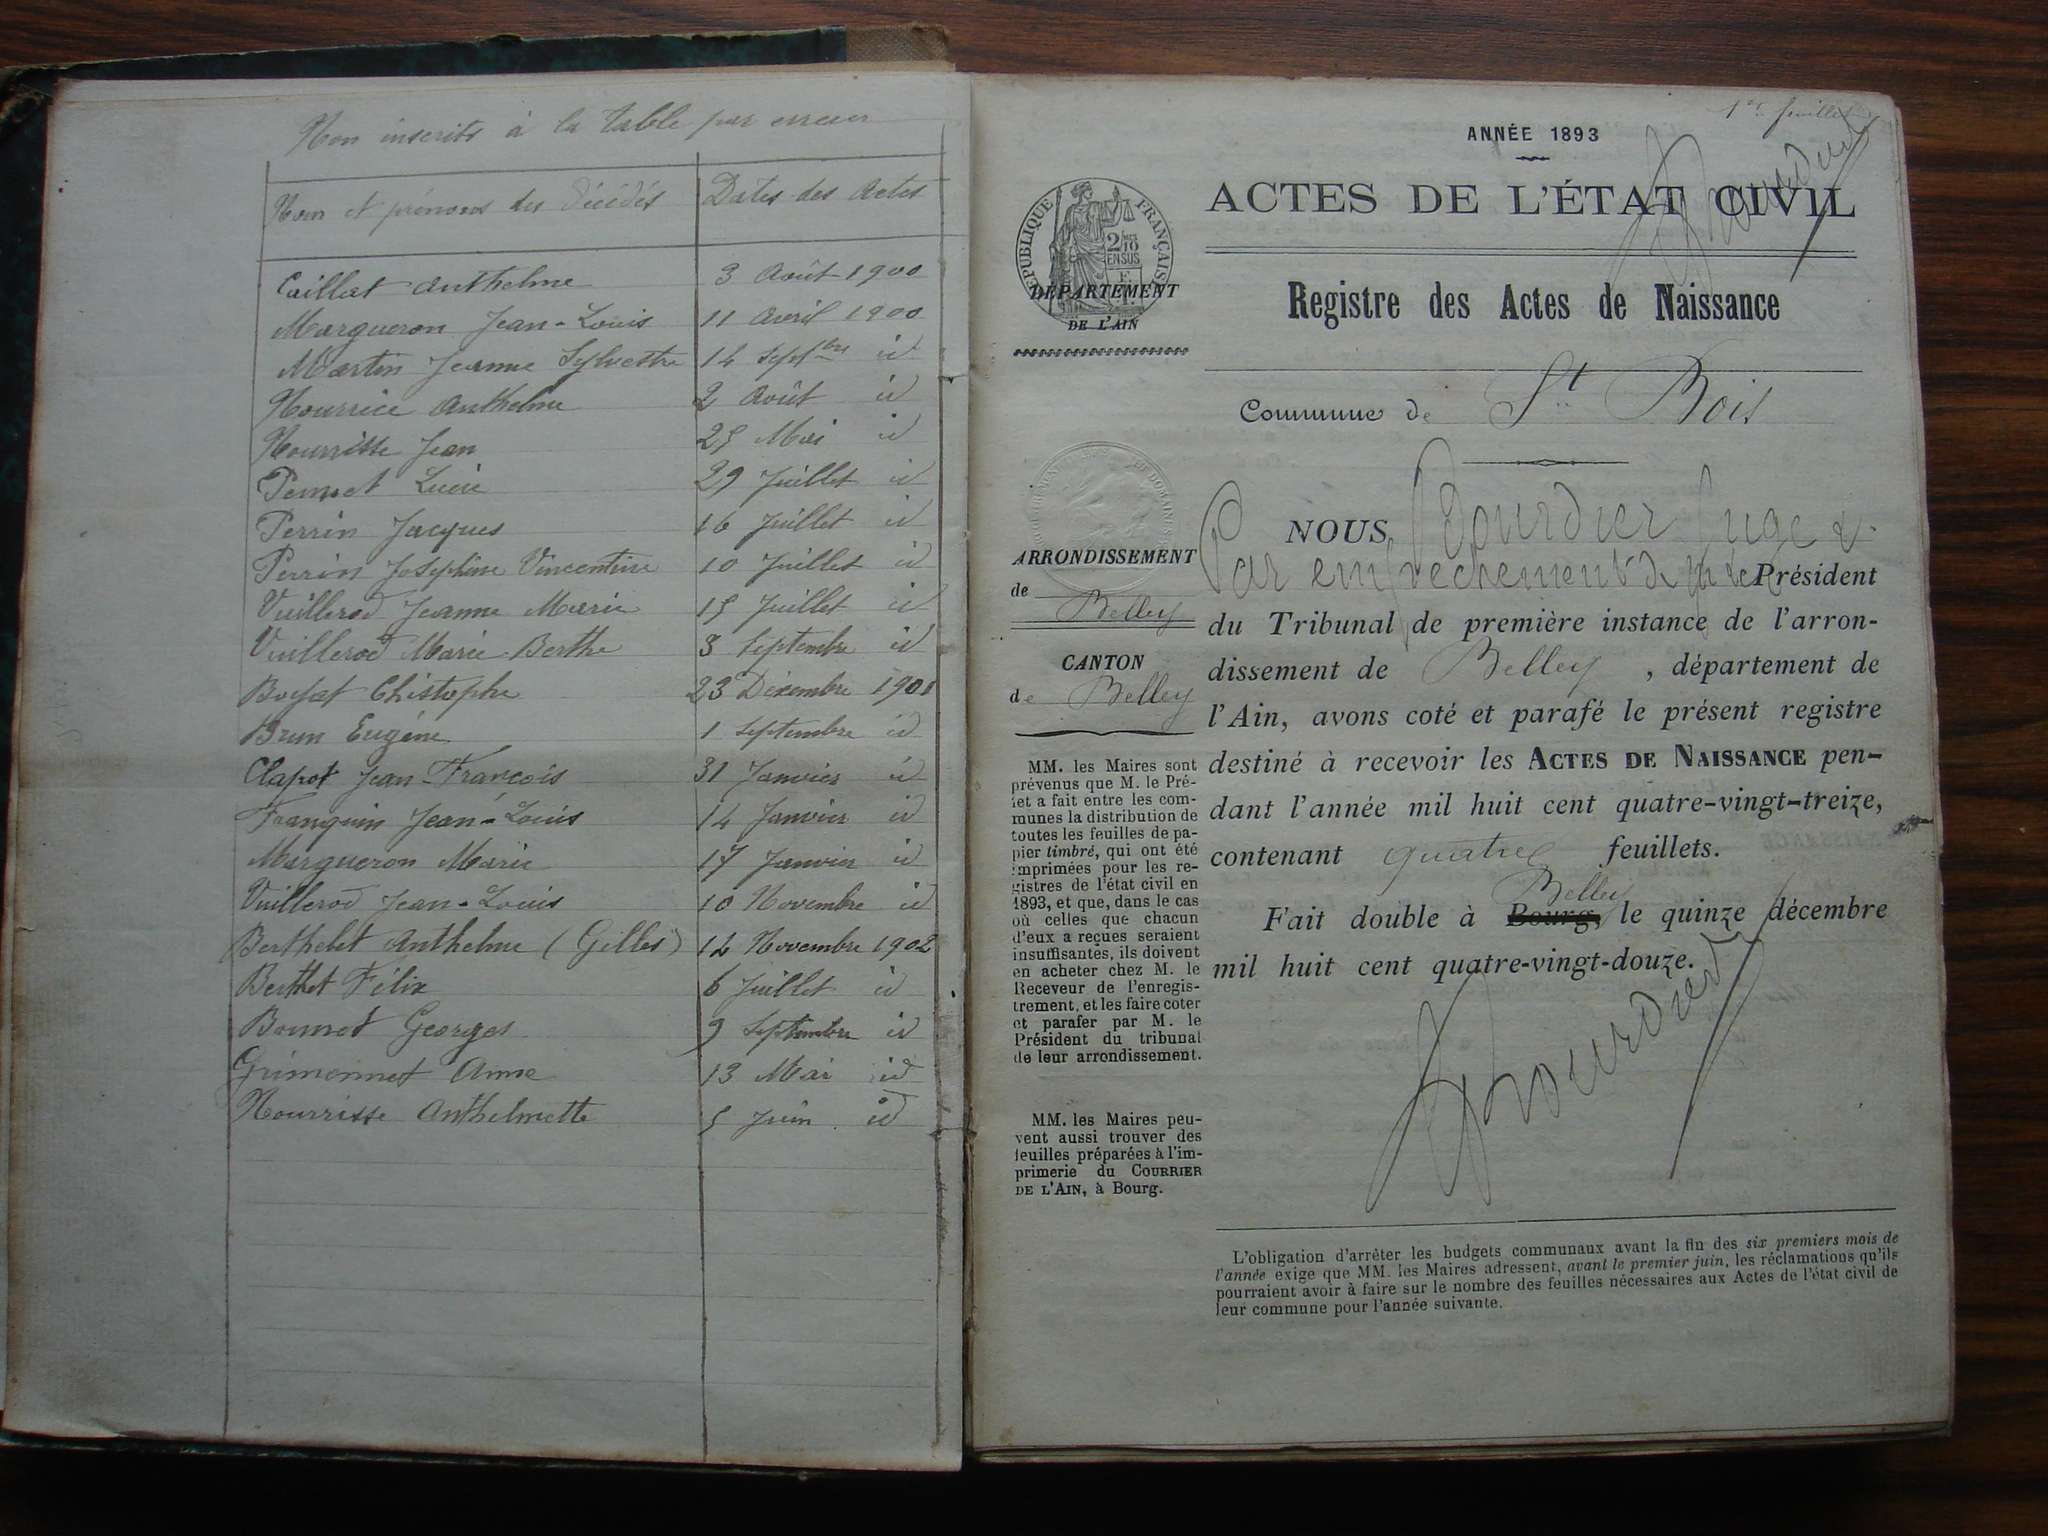 Non inscrits à la table par erreur
Nom et prénoms des décédés Dates des Actes
Caillat Anthelme 3 Août 1900
Margueron Jean-Louis 11 Avril 1900
Martin Jeanne Sylvestre 14 Septbre id
Nourrice Anthelme 2 Août id
Nourrisse Jean 25 Mai id
Pernet Lucie 29 Juillet id
Perrin Jacques 16 Juillet id
Perrin Joséphine Vincentine 10 Juillet id
Vuillerod Jeanne Marie 15 Juillet id
Vuillerod Marie Berthe 3 Septembre id
Christophe 23 Décembre 1901
Brun Eugène 1 Septembre id
Clapot Jean-François 31 Janvier id
Franquin Jean-Louis 14 Janvier id
Margueron Marie 17 Janvier id
Vuillerod Jean-Louis 10 Novembre id
Berthelet Anthelme (Gilles) 12 Novembre 1902
Berthet Félix 6 Juillet id
Bonnet Georges 9 Septembre id
Grimonnet Anne 13 Mai id
Nourrisse Anthelmette 5 Juin id
1er feuillet
ANNÉE 1893
ACTES DE L'ÉTAT CIVIL
RÉPUBLIQUE FRANÇAISE
2/10 EN SUS
DÉPARTEMENT
DE L'AIN
Registre des Actes de Naissance
Commune de St Bois
ARRONDISSEMENT
de Belley
CANTON
de Belley
MM. les Maires sont
prévenus que M. le Pré-
fet a fait entre les com-
munes la distribution de
toutes les feuilles de pa-
pier timbré, qui ont été
imprimées pour les re-
gistres de l'état civil en
1893, et que, dans le cas
où celles que chacun
d'eux a reçues seraient
insuffisantes, ils doivent
en acheter chez M. le
Receveur de l'enregis-
trement, et les faire coter
et parafer par M. le
Président du tribunal
de leur arrondissement.
MM. les Maires peu-
vent aussi trouver des
feuilles préparées à l'im-
primerie du COURRIER
DE L'AIN, à Bourg.
NOUS, Bourdier Juge
Par empêchement de Président
du Tribunal de première instance de l'arron-
dissement de Belley, département de
l'Ain, avons coté et parafé le présent registre
destiné à recevoir les ACTES DE NAISSANCE pen-
dant l'année mil huit cent quatre-vingt-treize,
contenant quatre feuillets.
Belley
Fait double à Bourg, le quinze décembre
mil huit cent quatre-vingt-douze.
Bourdier
L'obligation d'arrêter les budgets communaux avant la fin des six premiers mois de
l'année exige que MM. les Maires adressent, avant le premier juin, les réclamations qu'ils
pourraient avoir à faire sur le nombre des feuilles nécessaires aux Actes de l'état civil de
leur commune pour l'année suivante.